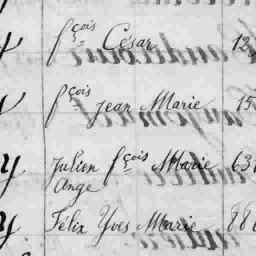 fçois César 12
fçois Jean Marie 15
y Julien fçois Marie 631
Ange
y Félix Yves Marie 886